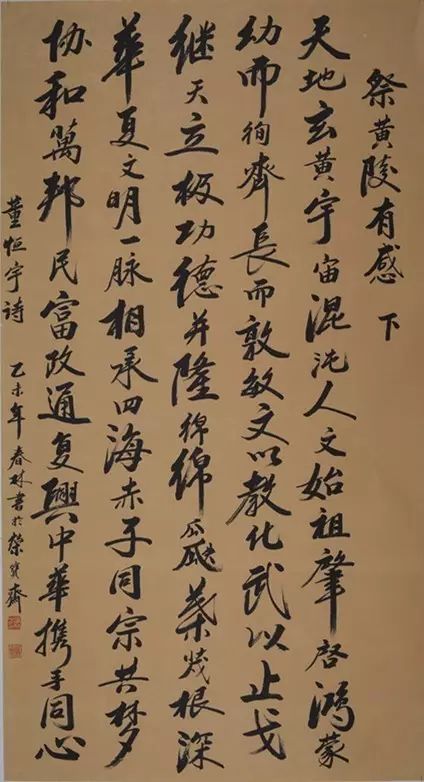 祭黄陵有感 下
天地玄黄宇宙混沌人文始祖肇启鸿蒙
幼而徇齊長而敦敏文以教化武以止戈
继天立极功德并隆绵绵瓜瓞葉茂根深
華夏文明一脉相承四海赤子同宗共梦
协和萬邦民富政通复興中華携手同心
董恒宇詩 乙未年春林書於榮宝齋